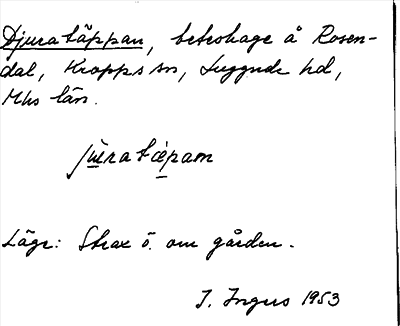 Djuratäppan, beteshage å Rosen-
dal, Kropps sn, Luggude hd,
Mhs län.
jùratæ̀pam
Läge: Strax ö. om gården.
I. Ingers 1953